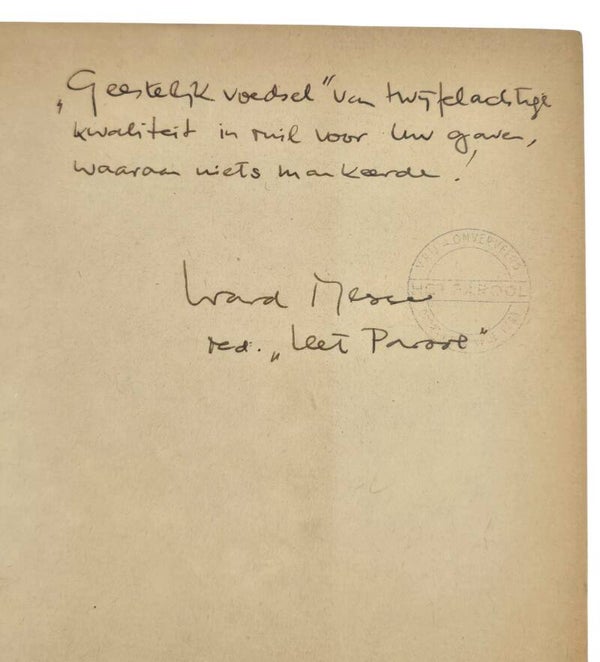 „Geestelijk voedsel” van twijfelachtige
kwaliteit in ruil voor Uw gaven,
waaraan niets mankeerde!
Ward Messer
red. „Het Parool”
VRIJ ONVERVEERD
HET PAROOL